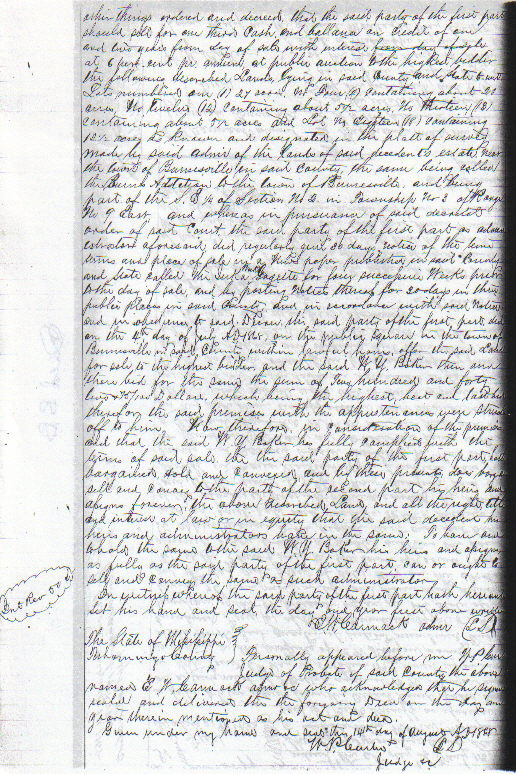 other things ordered and decreed, that the said party of the first part
should sell for one third Cash, and ballance on Credit of one
and two years from day of sale with interest from day of sale
at 6 per cent pr annum, at public auction to the highest bidder
the following described Lands, lying in said County and State
Lots numbered one (1) 27 acres, No Four (4) containing about 20
acres, No Twelve (12) Containing about 5½ acres, No Thirteen (13)
containing about 5½ acres and Lot No Eighteen (18) containing
12½ acres as known and designated in the platt of survey
made by said Admr of the Lands of said decedents estate near
the town of Burnsville in said County, the same being called
the Burns Addition to the town of Burnsville, and being
part of the S. E ¼ of Section No 2 in Township No 3 of Range
No 9 East, and whereas in pursuance of said decretal
order of said Court the said party of the first part as admin
istrator aforesaid, did regularly give 30 days notice of the time
terms and place of sale in a News paper published in said County
and State called the Gazette for four successive Weeks prior
to the day of sale and by posting notices thereof for 20 days in three
public places in said County, and in accordance with said Notice
and in obedience to said Decree, the said party of the first part, did
on the day of 1868, on the public Square in the town of
Burnsville in said County within lawful hours, offer the said Land
for sale to the highest bidder and the said W. Y. Baker then and
there bid for the same the sum of Two hundred and forty
two Dollars, which being the highest, best and last bid
therefor the said premises with the appurtenances were struck
off to him. Now, therefore, in consideration of the premises
and that the said W. Y Baker has fully complied with the
terms of said sale the said party of the first part, hath
bargained sold and conveyed and by these presents, does bargain
sell and convey to the party of the second part his heirs and
assigns forever, the above described Land, and all the right title
and interest at law or in equity that the said decedent his
heirs and administrators have in the same. To have and
to hold the same to the said W. Y. Baker his heirs and assigns
as fully as the said party of the first part, can or ought to
sell and Convey the same as such administrator
In witness whereof the said party of the first part hath hereunto
set his hand and seal, the day and year first above written
Carmack admr
The State of Mississippi
Tishomingo County
Personally appeared before me
Judge of Probate of said County the above
named Carmack admr who acknowledged that he signed
sealed and delivered the foregoing Deed on the day and
year therein mentioned as his act and deed.
Given under my hand and seal this 14th day of August AD 1868
Judge